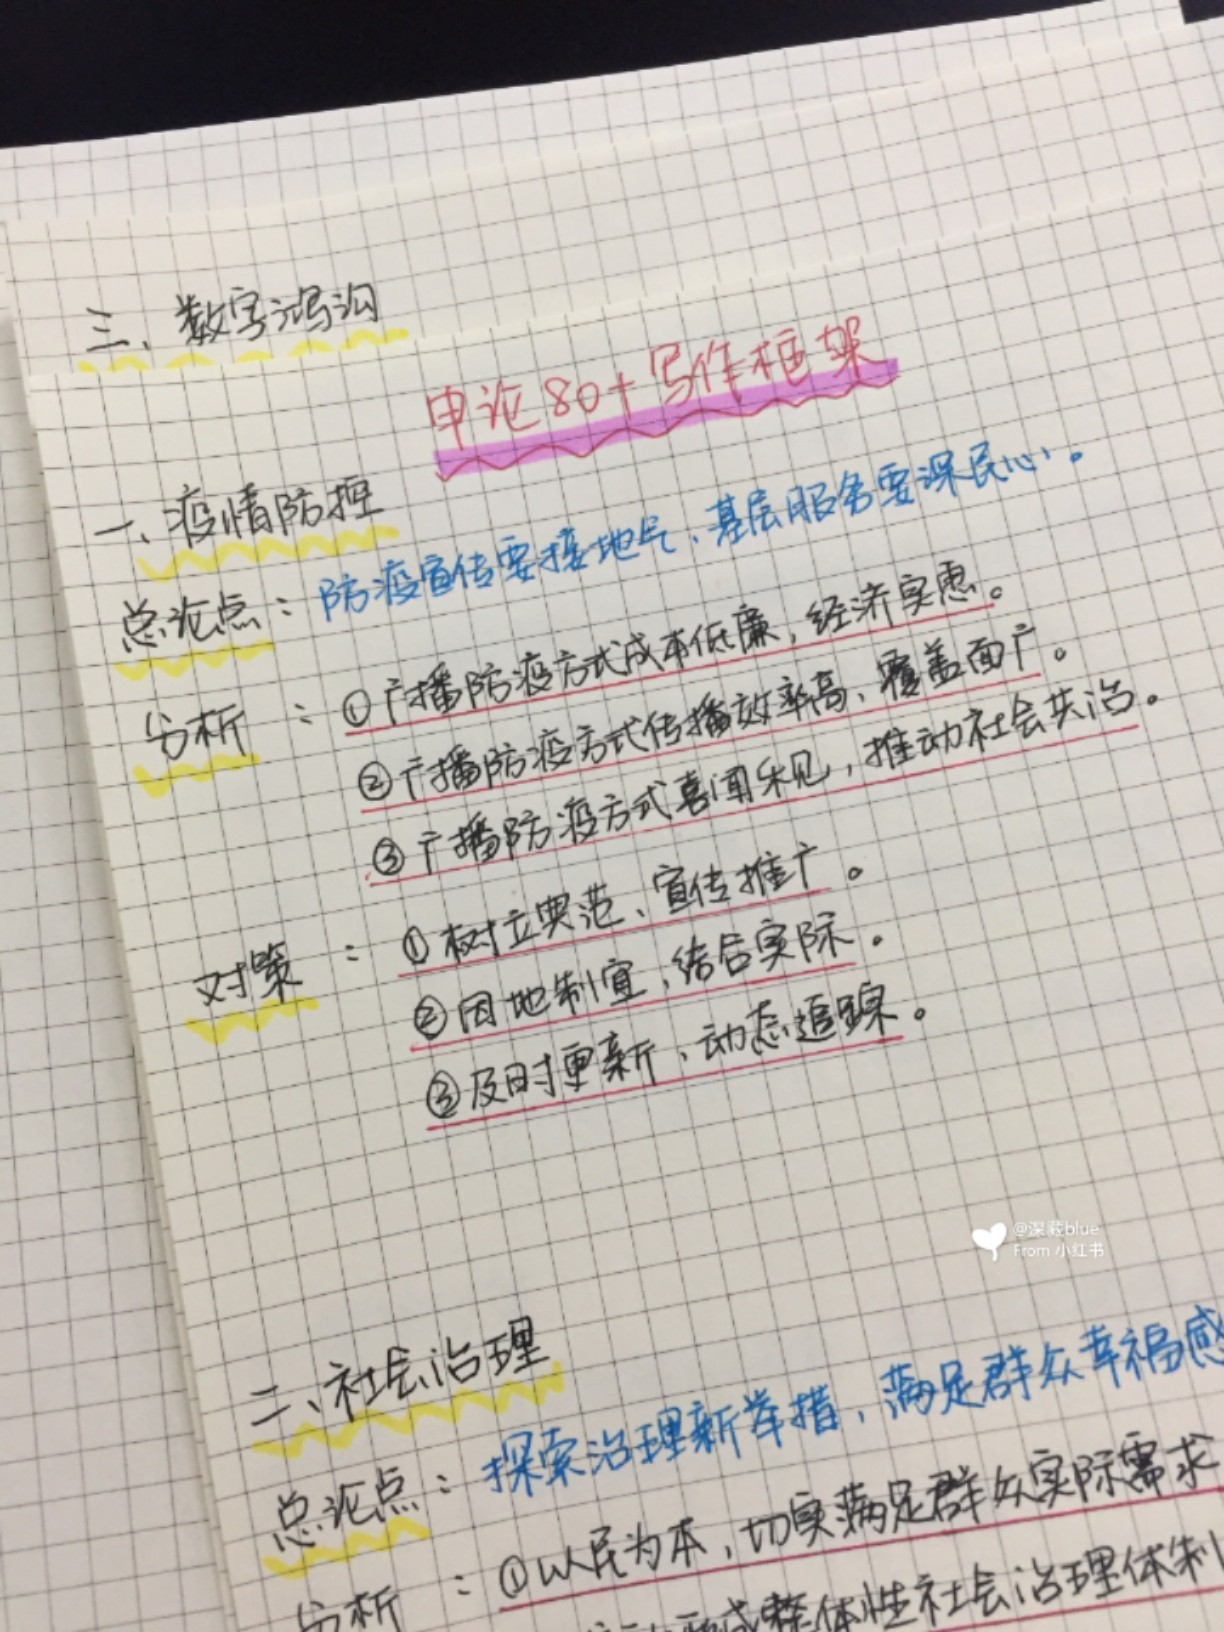 三、数字鸿沟
申论80+写作框架
一、疫情防控
总论点：防疫宣传要接地气、基层服务要深民心。
分析：①广播防疫方式成本低廉，经济实惠。
②广播防疫方式传播效率高、覆盖面广。
③广播防疫方式喜闻乐见，推动社会共治。
对策：①树立典范、宣传推广。
②因地制宜，结合实际。
③及时更新，动态追踪。
@深海blue
From 小红书
二、社会治理
总论点：探索治理新举措，满足群众幸福感
分析：①以民为本，切实满足群众实际需求
成整体性社会治理体制